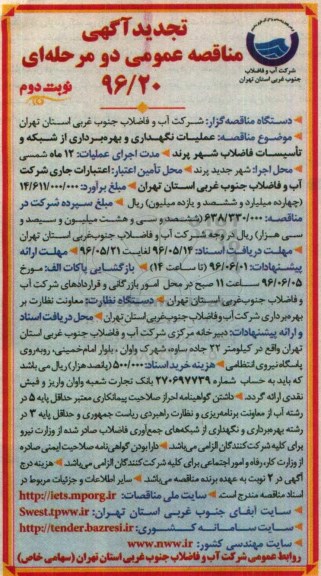 تجدید آگهی
مناقصه عمومی دو مرحله‌ای
۹۶/۲۰
نوبت دوم
شرکت آب و فاضلاب
جنوب غربی استان تهران
دستگاه مناقصه‌گزار: شرکت آب و فاضلاب جنوب غربی استان تهران
موضوع مناقصه: عملیات نگهداری و بهره‌برداری از شبکه و
تأسیسات فاضلاب شهر پرند مدت اجرای عملیات: ۱۲ ماه شمسی
محل اجرا: شهر جدید پرند محل تأمین اعتبار: اعتبارات جاری شرکت
آب و فاضلاب جنوب غربی استان تهران مبلغ برآورد: ۱۴/۶۱۱/۰۰۰/۰۰۰
(چهارده میلیارد و ششصد و یازده میلیون) ریال مبلغ سپرده شرکت در
مناقصه: ۶۳۸/۳۳۰/۰۰۰ (ششصد و سی و هشت میلیون و سیصد و
سی هزار) ریال در وجه شرکت آب و فاضلاب جنوب غربی استان تهران
مهلت دریافت اسناد: ۹۶/۰۵/۱۴ لغایت ۹۶/۰۵/۲۱ مهلت ارائه
پیشنهادات: ۹۶/۰۶/۰۱ (تا ساعت ۱۴) بازگشایی پاکات الف: مورخ
۹۶/۰۶/۰۵ ساعت ۱۱ صبح در محل امور بازرگانی و قراردادهای شرکت آب
و فاضلاب جنوب غربی استان تهران دستگاه نظارت: معاونت نظارت بر
بهره‌برداری شرکت آب و فاضلاب جنوب غربی استان تهران محل دریافت اسناد
و ارائه پیشنهادات: دبیرخانه مرکزی شرکت آب و فاضلاب جنوب غربی استان
تهران واقع در کیلومتر ۲۲ جاده ساوه، شهرک واوان، بلوار امام‌خمینی، روبه‌روی
پاسگاه نیروی انتظامی هزینه خرید اسناد: ۵۰۰/۰۰۰ (پانصد هزار) ریال می باشد
که باید به حساب شماره ۲۷۰۶۹۷۷۳۹ بانک تجارت شعبه واوان واریز و فیش
نقدی ارائه گردد. داشتن گواهینامه احراز صلاحیت پیمانکاری معتبر حداقل پایه ۵ در
رشته آب از معاونت برنامه‌ریزی و نظارت راهبردی ریاست جمهوری و حداقل پایه ۳ در
رشته بهره‌برداری و نگهداری از شبکه‌های جمع‌آوری فاضلاب صادر شده از وزارت نیرو
برای کلیه شرکت‌کنندگان الزامی می‌باشد. دارا بودن گواهی‌نامه صلاحیت ایمنی صادره
از وزارت کار، رفاه و امور اجتماعی برای کلیه شرکت‌کنندگان الزامی می‌باشد. هزینه درج
آگهی در ۲ نوبت به عهده برنده مناقصه می‌باشد. سایر اطلاعات و جزئیات مربوط در
اسناد مناقصه مندرج است. سایت ملی مناقصات: http://iets.mporg.ir
سایت آبفای جنوب غربی استان تهران: Swest.tpww.ir
سایت سامانه کشوری: http://tender.bazresi.ir
سایت مهندسی کشور: www.nww.ir
روابط عمومی شرکت آب و فاضلاب جنوب غربی استان تهران (سهامی خاص)